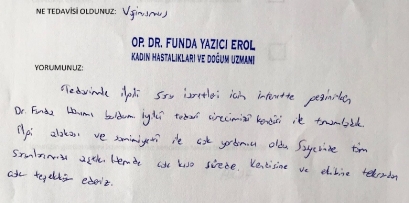 NE TEDAVİSİ OLDUNUZ: Vajinismus
OP. DR. FUNDA YAZICI EROL
KADIN HASTALIKLARI VE DOĞUM UZMANI
YORUMUNUZ:
Tedavimle ilgili soru işaretleri için internette gezinirken
Dr. Funda Hanımı buldum iyiki tedavi sürecimizi kendisi ile tamamladık.
İlgi alakası ve samimiyeti ile çok yardımcı oldu Sayesinde tüm
sorunlarımızı aştık hemde çok kısa sürede. Kendisine ve ekibine tekrardan
çok teşekkür ederiz.